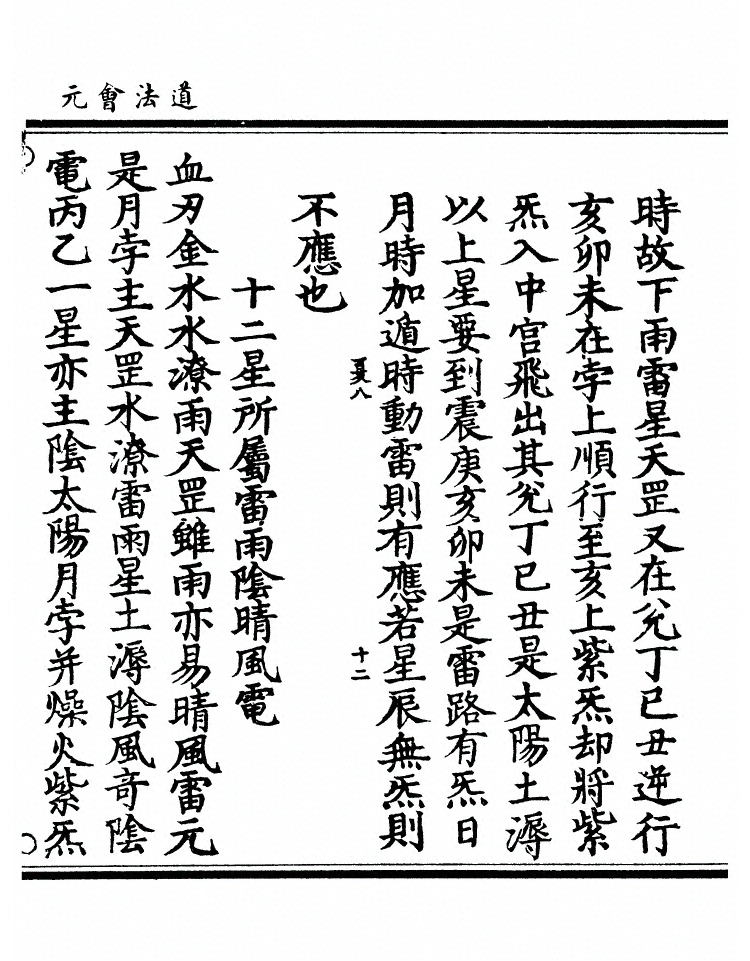 道法會元
時故下雨雷星天罡又在兊丁巳丑逆行
亥卯未在孛上順行至亥上紫炁却將紫
炁入中宮飛出其兊丁巳丑是太陽土溽
以上星要到震庚亥卯未是雷路有炁日
月時加遁時動雷則有應若星辰無炁則
㚆八
十二
不應也
十二星所屬雷雨陰晴風電
血刃金水水潦雨天罡雖雨亦易晴風雷元
是月孛主天罡水潦雷雨星土溽陰風奇陰
電丙乙一星亦主陰太陽月孛并燥火紫炁